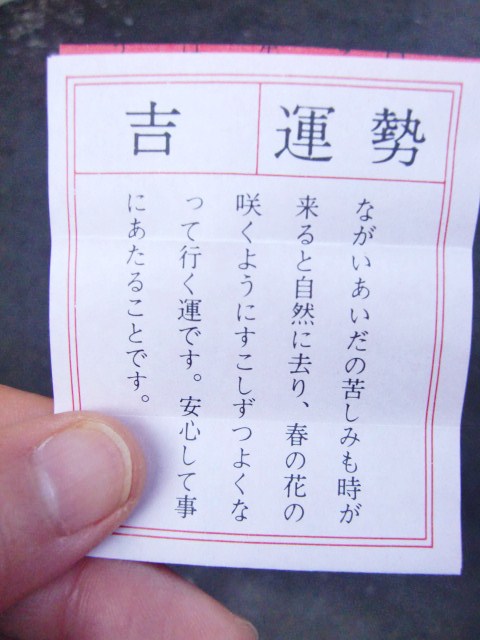 運勢
吉
ながいあいだの苦しみも時が
来ると自然に去り、春の花の
咲くようにすこしずつよくな
って行く運です。安心して事
にあたることです。